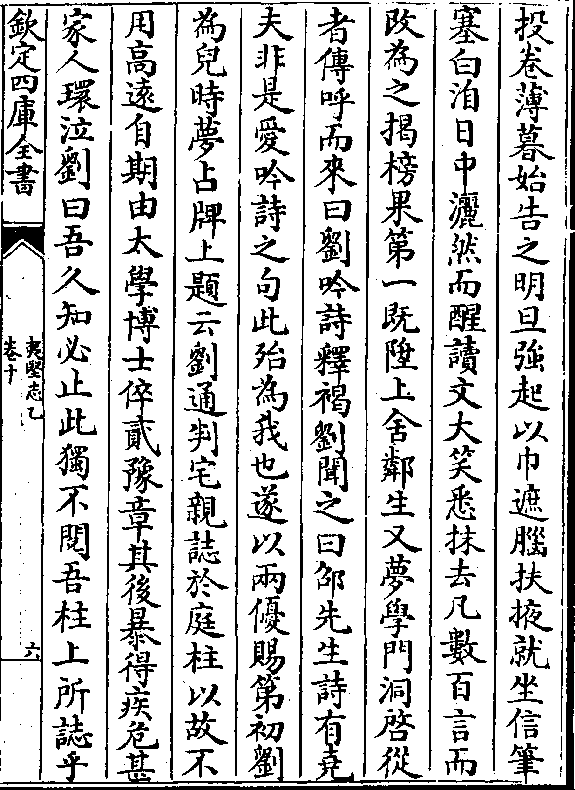 投卷薄暮始告之明旦強起以巾遮腦扶掖就坐信筆
塞白洎日中灑然而醒讀文大笑悉抹去凡數百言而
改為之揭榜果第一既陞上舍鄰生又夢學門洞啓從
者傳呼而來曰劉吟詩釋褐劉聞之曰邵先生詩有堯
夫非是愛吟詩之句此殆為我也遂以兩優賜第初劉
為兒時夢占牌上題云劉通判宅親誌於庭柱以故不
用高遠自期由太學博士倅貳豫章其後暴得疾危甚
家人環泣劉曰吾久知必止此獨不閱吾柱上所誌乎
欽定四庫全書
夷堅志乙
卷十
六